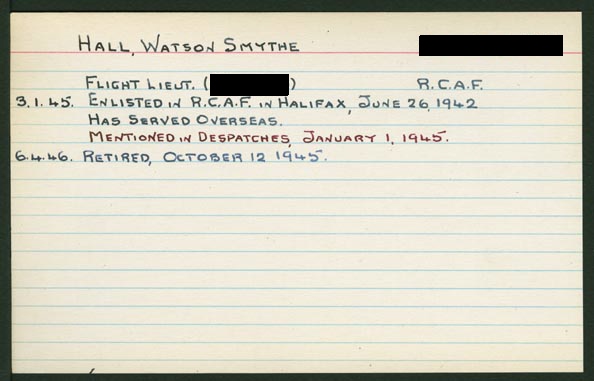 HALL, WATSON SMYTHE
FLIGHT LIEUT. ( ) R.C.A.F.
3.1.45. ENLISTED IN R.C.A.F. IN HALIFAX, JUNE 26, 1942
HAS SERVED OVERSEAS.
MENTIONED IN DESPATCHES, JANUARY 1, 1945.
6.4.46. RETIRED, OCTOBER 12 1945.